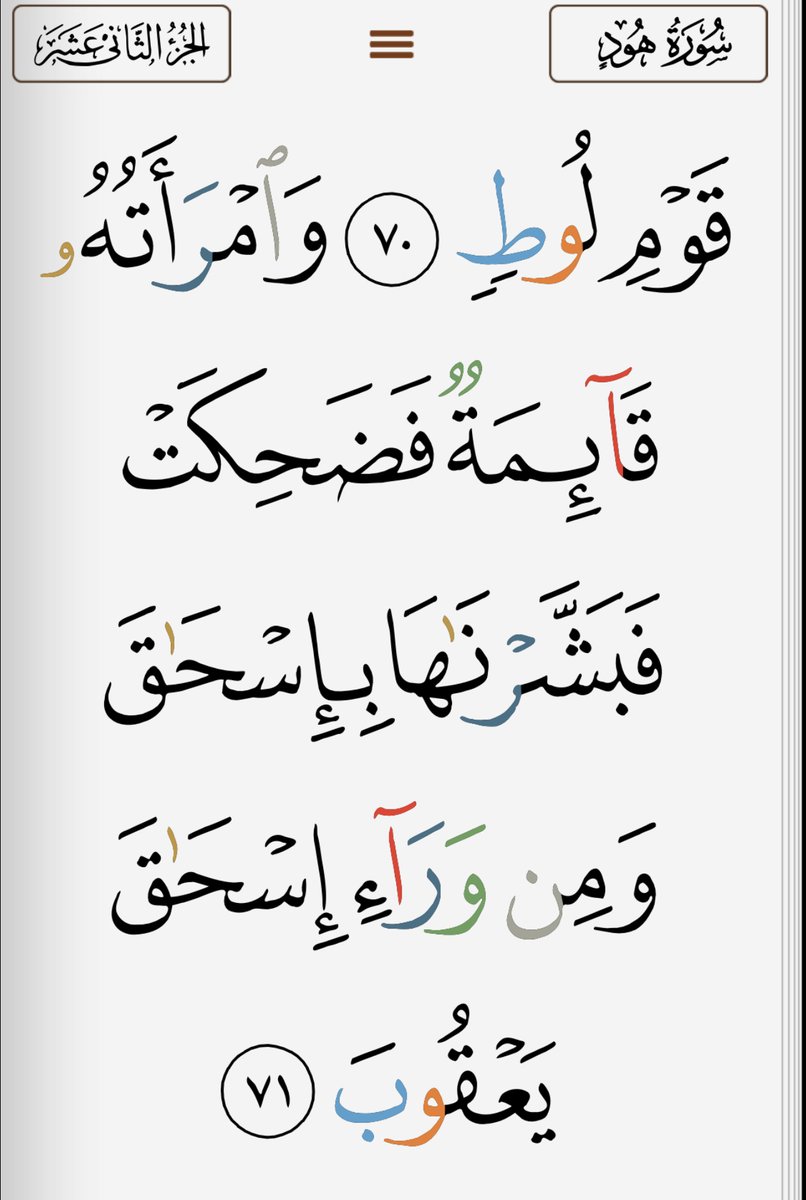 سُورَةُ هُودٍ
الجُزْءُ الثَّانِي عَشَرَ
قَوْمِ لُوطٍ ٧٠ وَٱمْرَأَتُهُۥ
قَآئِمَةٌ فَضَحِكَتْ
فَبَشَّرْنَٰهَا بِإِسْحَٰقَ
وَمِن وَرَآءِ إِسْحَٰقَ
يَعْقُوبَ ٧١